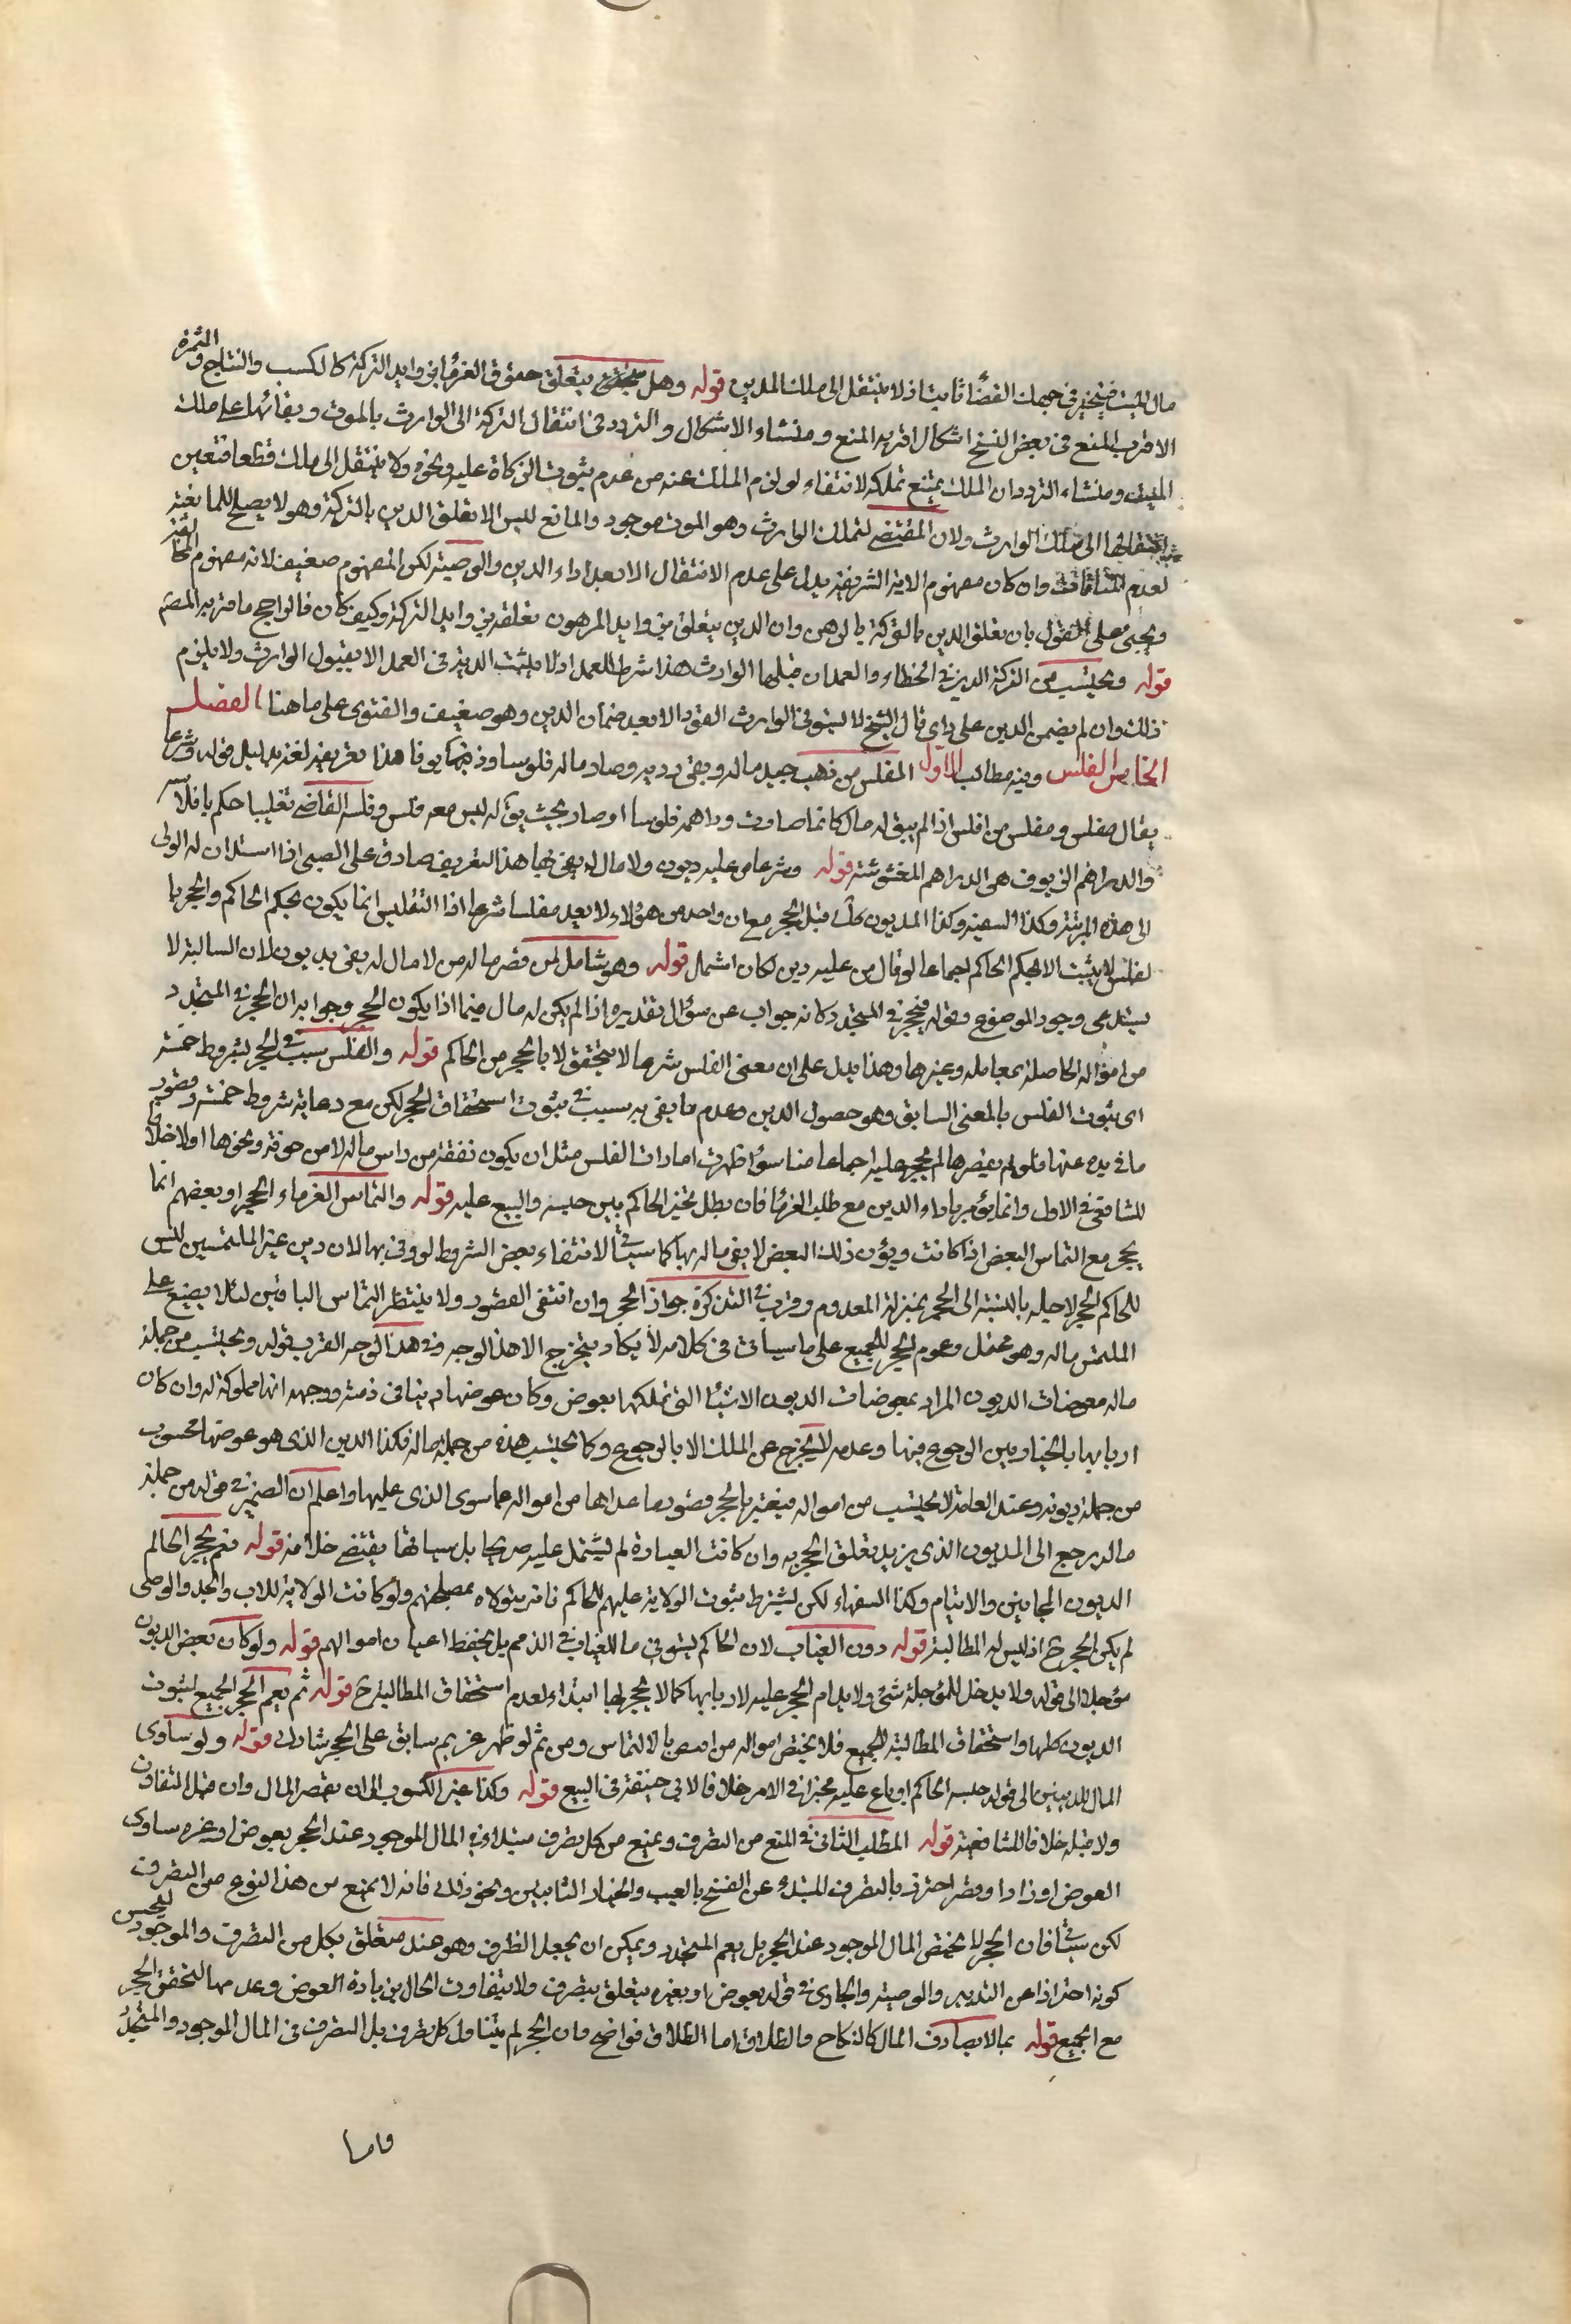 مال الميت فينجبر في جهات القضاء ثابتا اذ لا ينتقل الى ملك المدين قوله وهل يتعلق حقوق الغرماء بزوايد التركة كالكسب والنتاج والثمرة
الاقرب المنع في بعض النسخ اشكال اقربه المنع ومنشاء الاشكال والتردد في انتقال التركة الى الوارث بالموت وبقائها على ملك
الميت ومنشاء التردد ان الملك يمتنع تملكه لانتفاء لوازم الملك عنه من عدم ثبوت الزكاة عليه ونحوه ولا ينتقل الى ملك قطعا فتعين
انتقالها الى ملك الوارث ولان المقتضي لتملك الوارث وهو الموت موجود والمانع ليس الا تعلق الدين بالتركة وهو لا يصلح للمانعية
لعدم المنافاة وان كان مفهوم الاية الشريفة يدل على عدم الانتقال الا بعد اداء الدين والوصية لكن المفهوم ضعيف لانه مفهوم المخالفة
ويجئ على القول بان تعلق الدين بالتركة كالرهن وان الدين يتعلق بزوايد المرهون تعلقه بزوايد التركة وكيف كان فالراجح ما قربه المصنف
قوله ويحتسب من التركة الدية في الخطاء والعمد ان قبلها الوارث هذا شرط للعمد اذ لا يثبت الدية في العمد الا بقبول الوارث ولا يلزم
ذلك وان لم يضمن الدين على راي قال الشيخ لا يستوفي الوارث القود الا بعد ضمان الدين وهو ضعيف والفتوى على ما هنا الفصل
الخامس الفلس وفيه مطالب الاول المفلس من ذهب جيد ماله وبقي رديه وصار ماله فلوسا وزيوفا هذا تعريفه لغة بدليل قوله وشرعا
يقال مفلس ومفلس من افلس اذا لم يبق له مال كانما صارت دراهمه فلوسا او صار بحيث يقال ليس معه فلس وفلسه القاضي تفليسا حكم بافلاسه
والدراهم الزيوف هي الدراهم المغشوشة قوله وشرعا من عليه ديون ولا مال له يفي بها هذا التعريف صادق على الصبي اذا استدان له الولي
الى هذه المرتبة وكذا السفيه وكذا المديون كذلك قبل الحجر مع ان واحد من هؤلاء لا يعد مفلسا شرعا اذا التفليس انما يكون بحكم الحاكم والحجر با
لفلس لا يثبت الا بحكم الحاكم اجماعا لو قال من عليه دين لكان اشمل قوله وهو شامل لمن قصر ماله من لا مال له يفي بديون لان السالبة لا
يستدعي وجود الموضوع وقوله فيحجر في المتجدد كانه جواب عن سؤال تقديره اذا لم يكن له مال فيما اذا يكون الحجر وجوابه ان الحجر في المتجدد
من امواله الحاصلة بمعاملة وغيرها وهذا يدل على ان معنى الفلس شرعا لا يتحقق الا بالحجر من الحاكم قوله والفلس سبب في الحجر بشروط خمسة
اي ثبوت الفلس بالمعنى السابق وهو حصول الدين وعدم ما يفي به سبب في ثبوت استحقاق الحجر لكن مع رعاية شروط خمسة وقصور
ما في يده عنها فلو لم يقصرها لم يحجر عليه اجماعا منا سواء ظهرت امارات الفلس مثل ان يكون نفقته من راس ماله لا من حرفة ونحوها او لا خلافا
للشافعي في الاول وانما يؤمر باداء الدين مع طلب الغرماء فان مطل تخير الحاكم بين حبسه والبيع عليه قوله والتماس الغرماء الحجر او بعضهم انما
يحجر مع التماس البعض اذا كانت ديون ذلك البعض لا يفي ماله بها كما سيأتي لانتفاء بعض الشروط لو وفى بها لان دين غير الملتمسين ليس
للحاكم الحجر لاجله بالنسبة الى الحجر بمنزلة المعدوم وقرب في التذكرة جواز الحجر وان انتفى القصور ولا ينتظر التماس الباقين لئلا يضيع على
الملتمس ماله وهو محتمل وعموم الحجر للجميع على ما سياتي في كلامه لا يكاد يتخرج الا هذا الوجه وفي هذا الوجه القرب قوله ويحتسب من جملة
ماله معوضات الديون المراد بمعوضات الديون الاشياء التي تملكها بعوض وكان عوضها دينا في ذمته ووجهه انها مملوكة له وان كان
اربابها بالخيار بين الرجوع فيها وعدمه لا يخرج عن الملك الا بالرجوع وكما يحتسب هذه من جملة ماله فكذا الدين الذي هو عوضها محسوب
من جملة ديونه وعند العامة لا يحتسب من امواله فيعتبر بالحجر قصور ما عداها من امواله عما سوى الذي عليها واعلم ان الضمير في قوله من جملة
ماله يرجع الى المديون الذي يريد تعلق الحجر به وان كانت العبارة لم يشتمل عليه صريحا بل سياقها يقتضي خلافه قوله نعم يحجر الحاكم
لديون المجانين والايتام وكذا السفهاء لكن يشترط ثبوت الولاية عليهم للحاكم فانه يتولاه بمصلحتهم ولو كانت الولاية للاب والجد والوصي
لم يكن الحجر ح اذ ليس له المطالبة قوله دون الغياب لان الحاكم لا يستوفي ما للغياب في الذمم بل يحفظ اعيان اموالهم قوله ولو كان بعض الديون
مؤجلا الى قوله ولا يدخل للمؤجلة شئ ولا يدام الحجر عليه لاربابها كما لا يحجر لها ابتداء لعدم استحقاق المطالبة ح قوله ثم يعم الحجر الجميع لثبوت
الديون كلها واستحقاق المطالبة للجميع فلا يختص امواله من اختص بالالتماس ومن ثم لو ظهر غريم سابق على الحجر شارك قوله ولو ساوى
المال الديون الى قوله حبسه الحاكم او باع عليه مخيرا في الامر خلافا لابي حنيفة في البيع قوله وكذا غير الكسوب الى ان يقصر المال وان قل التفاوت
ولا قبله خلافا للشافعية قوله المطلب الثاني في المنع من التصرف ويمنع من كل تصرف مبتداء في المال الموجود عند الحجر بعوض او غيره ساوى
العوض او زاد او قصر احترز بالتصرف المبتداء عن الفسخ بالعيب والخيار الثابتين ونحو ذلك فانه لا يمنع من هذا النوع من التصرف
لكن سيأتي فان الحجر لا يختص المال الموجود عند الحجر بل يعم المتجدد ويمكن ان يجعل الظرف وهو عند متعلق بكل من التصرف والموجود ليحسن
كونه احترازا عن التدبير والوصية والجار في قوله بعوض او بغيره يتعلق بتصرف ولا يتفاوت الحال بزيادة العوض وعدمها لتحقق الحجر
مع الجميع قوله بما لا يصادف المال كالنكاح والطلاق اما الطلاق فواضح فان الحجر لم يتناول كل تصرف بل التصرف في المال الموجود والمتجدد
واما